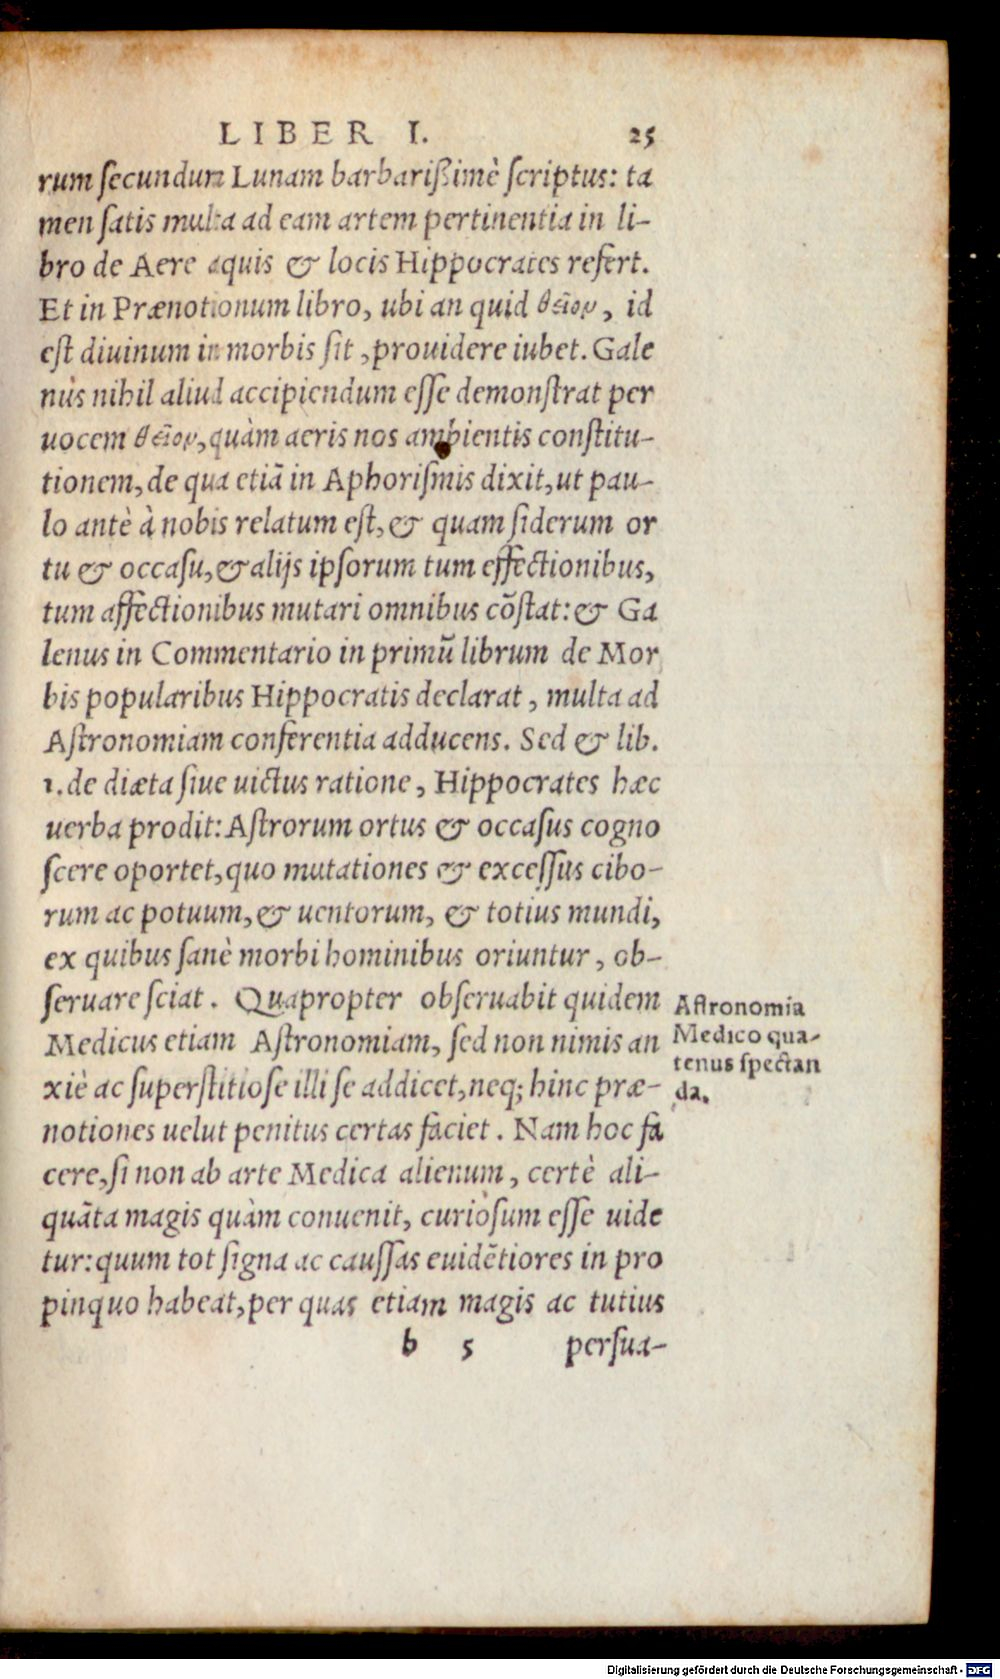 LIBER I. 25
rum secundum Lunam barbarißimè scriptus: ta
men satis multa ad eam artem pertinentia in li-
bro de Aere aquis & locis Hippocrates refert.
Et in Prænotionum libro, ubi an quid θεῖον, id
est diuinum in morbis sit, prouidere iubet. Gale
nus nihil aliud accipiendum esse demonstrat per
uocem θεῖον, quàm aeris nos ambientis constitu-
tionem, de qua etiā in Aphorismis dixit, ut pau-
lo antè à nobis relatum est, & quam siderum or
tu & occasu, & alijs ipsorum tum effectionibus,
tum affectionibus mutari omnibus cōstat: & Ga
lenus in Commentario in primū librum de Mor
bis popularibus Hippocratis declarat, multa ad
Astronomiam conferentia adducens. Sed & lib.
1. de diæta siue uictus ratione, Hippocrates hæc
uerba prodit: Astrorum ortus & occasus cogno
scere oportet, quo mutationes & excessus cibo-
rum ac potuum, & uentorum, & totius mundi,
ex quibus sanè morbi hominibus oriuntur, ob-
seruare sciat. Quapropter obseruabit quidem
Medicus etiam Astronomiam, sed non nimis an
xiè ac superstitiose illi se addicet, neq; hinc præ-
notiones uelut penitus certas faciet. Nam hoc fa
cere, si non ab arte Medica alienum, certè ali-
quāta magis quàm conuenit, curiosum esse uide
tur: quum tot signa ac caussas euidētiores in pro
pinquo habeat, per quas etiam magis ac tutius
b 5 persua-
Astronomia
Medico qua-
tenus spectan
da.
Digitalisierung gefördert durch die Deutsche Forschungsgemeinschaft - DFG